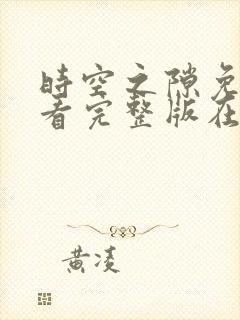 時空之隙免
看完整版在
黄凌